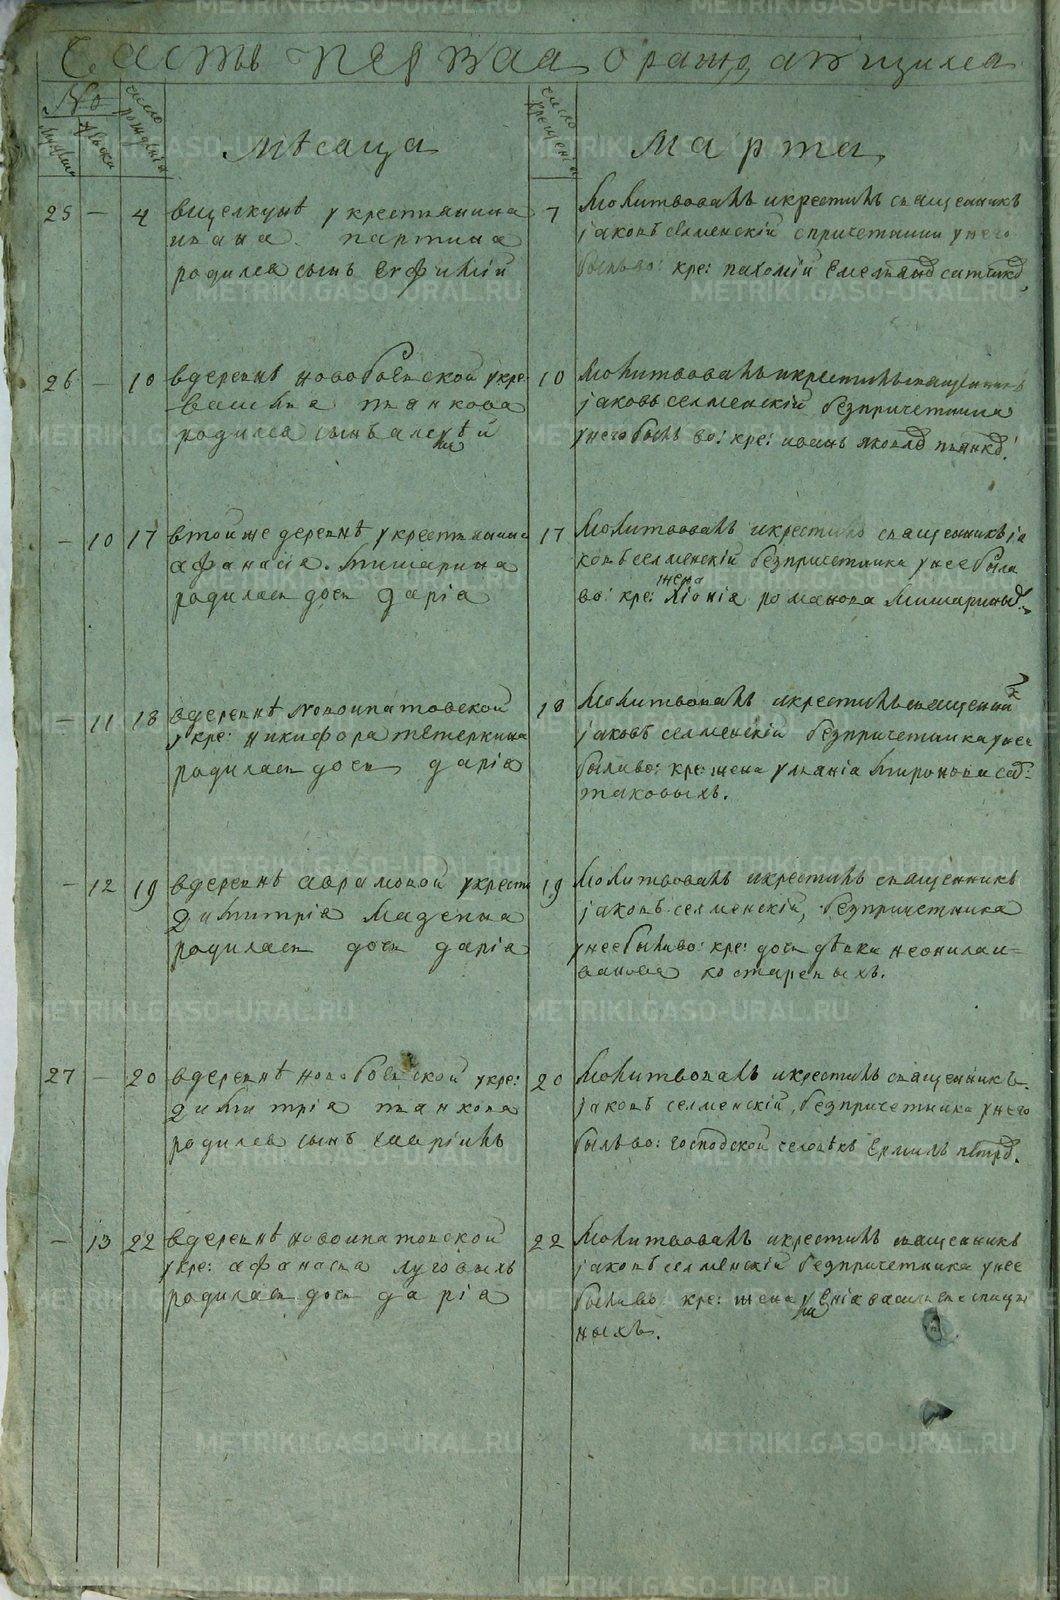 Часть первая о раждающихся
№
число рождения
число крещения
мѣсаца
марта
25 — 4 вщелкунѣ у крестьянина
ивана партина
родился сынъ Евфимій
7 Молитвовалъ икрестилъ священникъ
іаковъ селменскій спричетники унего
былъ во: кре: пахомій Емельянов
26 — 10 вдеревнѣ новобоевской укре
василья пьянкова
родился сынъ алексѣй
10 Молитвовалъ икрестилъ священникъ
іаковъ селменскій безпричетника
унего былъ во: кре: иванъ яковлв пьянкв
— 10 17 втойже деревнѣ у крестьянина
афанасіа мишарина
родилась дочь даріа
17 Молитвовалъ икрестилъ священникъ іа
ковъ селменскій безпричетника унее была
во: кре: жена романова мишариных
— 11 18 вдеревнѣ новоипатовской
укре: никифора тетеркина
родилась дочь даріа
18 Молитвовалъ икрестилъ священник
іаковъ селменскій безпричетника унее
была во: кре: жена уліяніа миронова
таковыхъ.
— 12 19 вдеревнѣ аврамовой укрестья
димитріа
родилась дочь даріа
19 Молитвовалъ икрестилъ священникъ
іаковъ селменскій, безпричетника
унее была во: кре: дочь дѣвка неонила и=
ванова костаревыхъ.
27 — 20 вдеревнѣ новобоевской укре:
димитріа пьянкова
родился сынъ гавріилъ
20 Молитвовалъ икрестилъ священникъ
іаковъ селменскій, безпричетника унего
былъ во: господской человѣкъ Ермилъ петрв.
— 13 22 вдеревнѣ новоипатовской
укре: афанасья луговыхъ
родилась дочь даріа
22 Молитвовалъ икрестилъ священникъ
іаковъ селменскій безпричетника унее
была во кре: жена васильева спицы
ныхъ.
METRIKI.GASO-URAL.RU